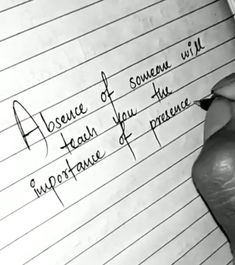 Absence of someone will
teach you the
importance of presence